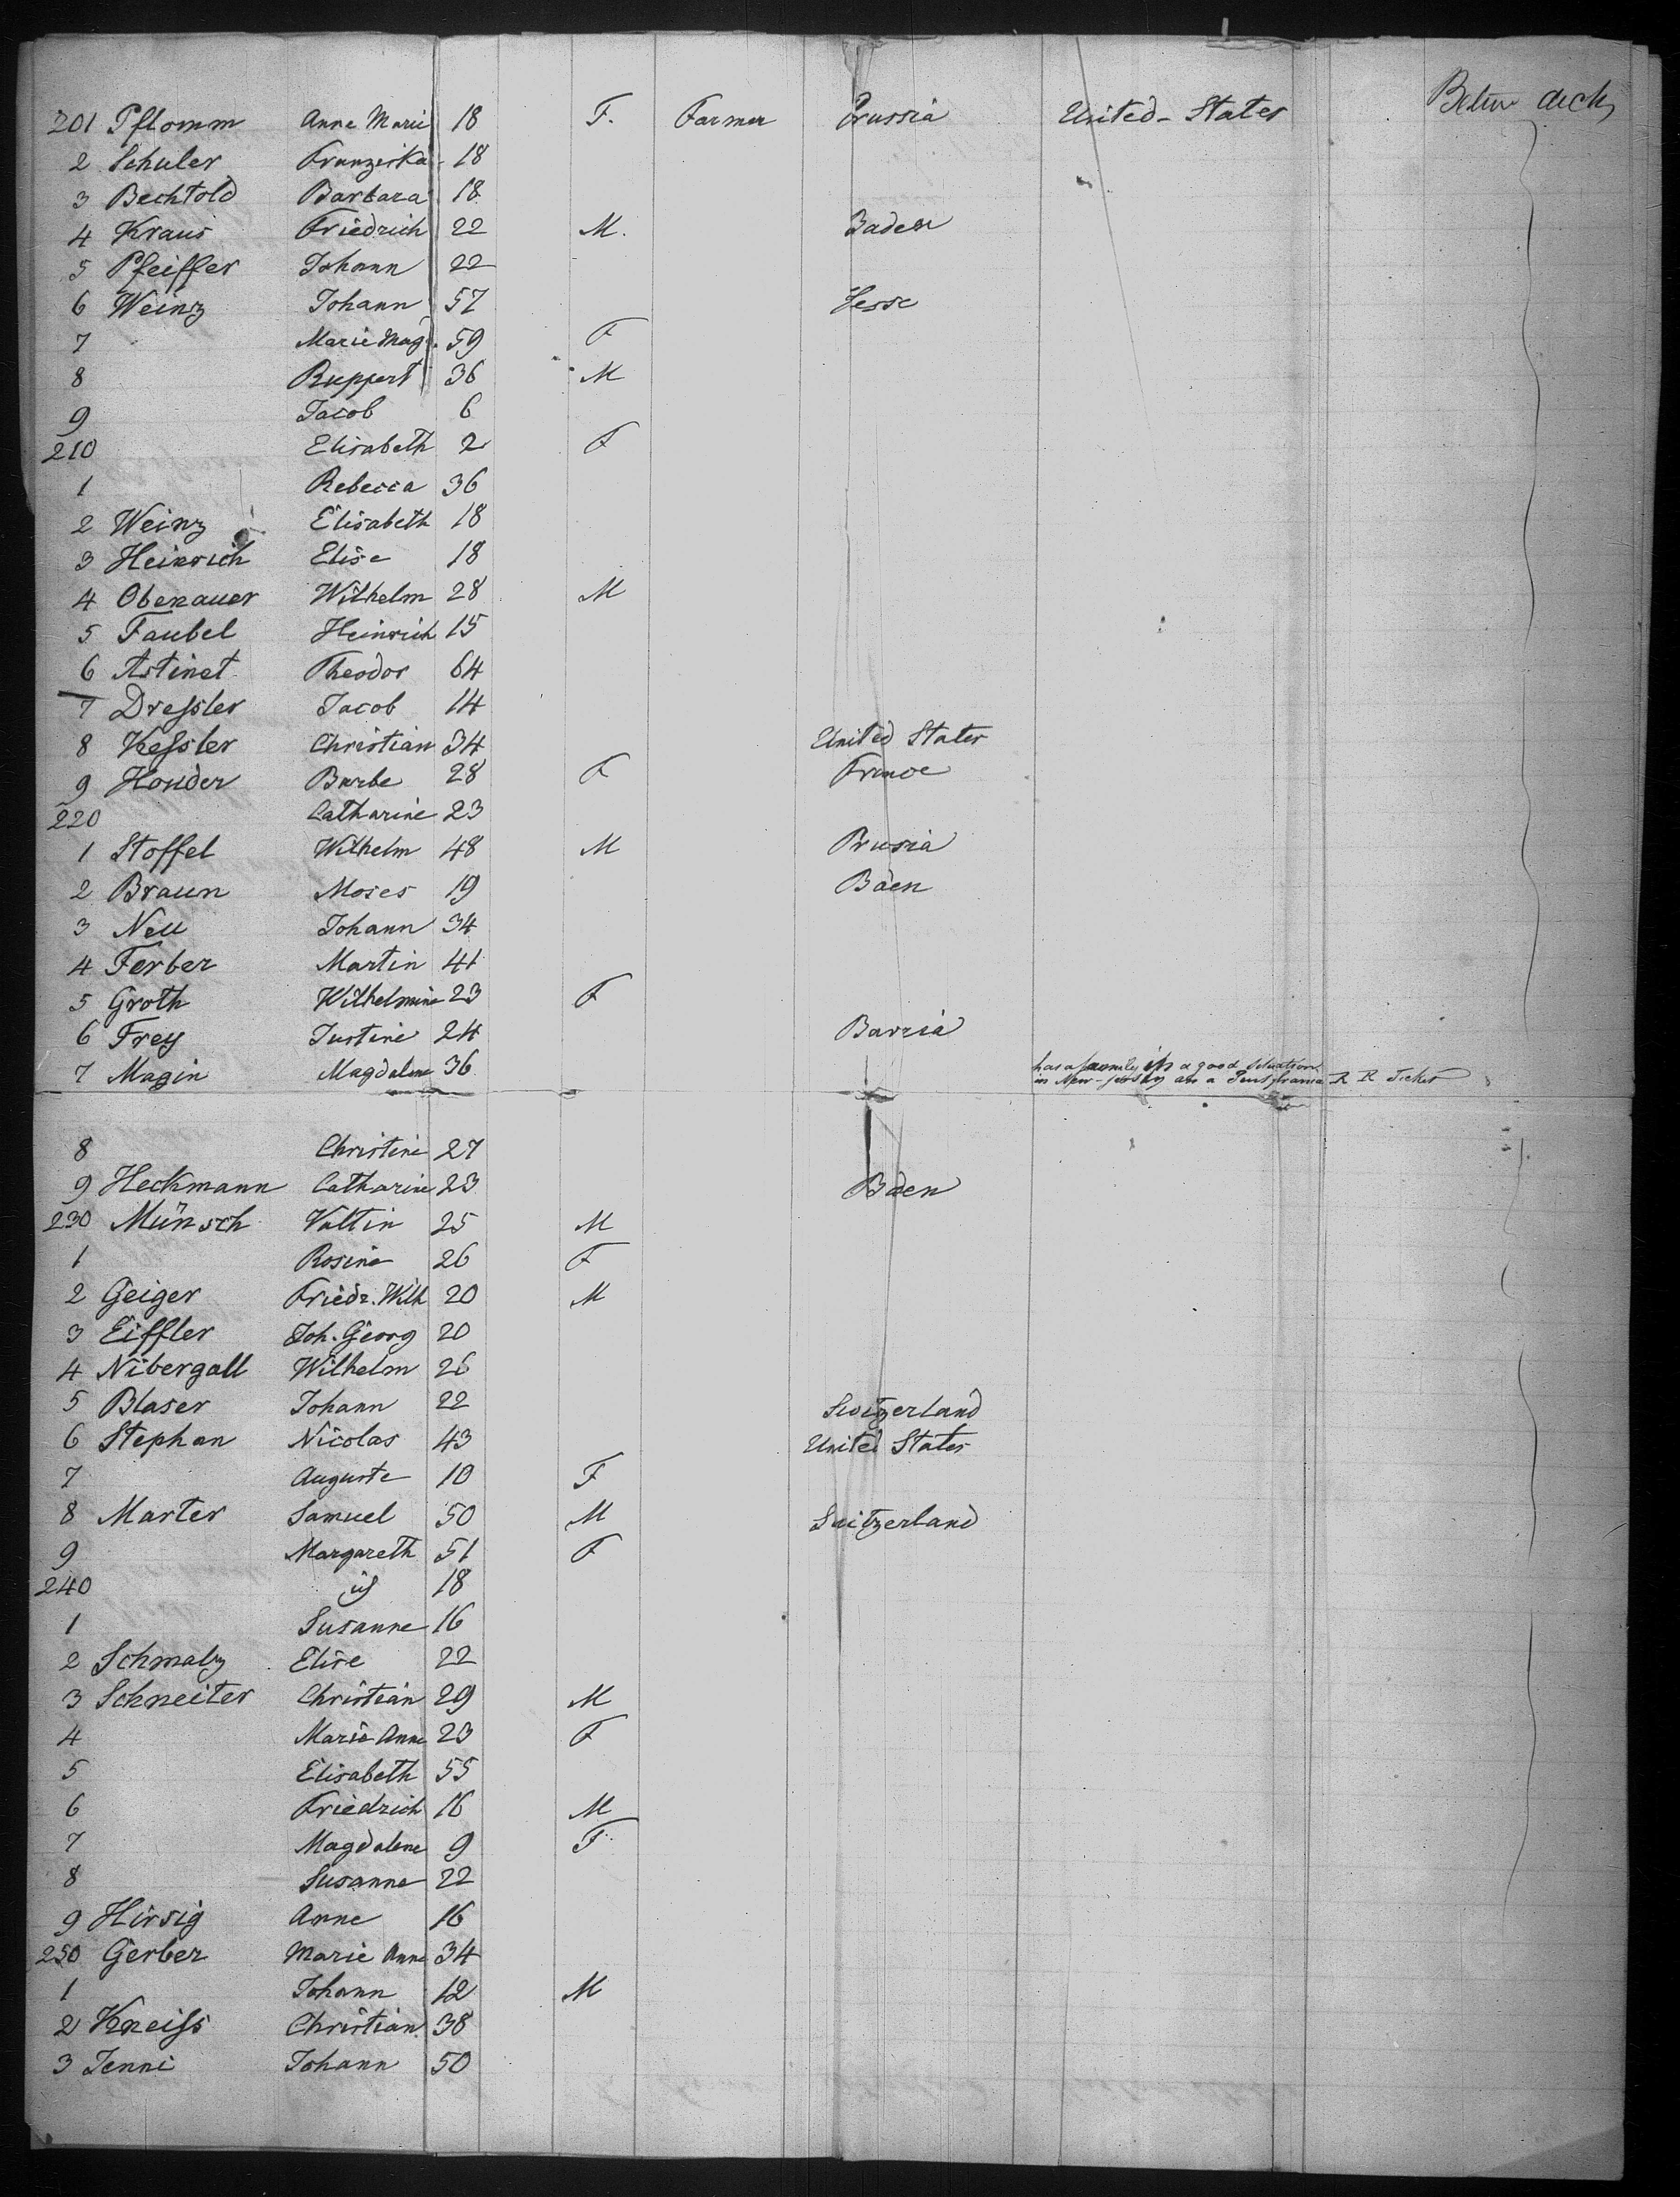 201 Pflomm Anne Marie 18 F. Farmer Prussia United-States Betw deck
2 Schuler Franziska 18
3 Bechtold Barbara 18
4 Kraus Friedrich 22 M. Baden
5 Pfeiffer Johann 22
6 Weinz Johann 57 Hesse
7 Marie Mag. 59 F
8 Ruppert 36 M
9 Jacob 6
210 Elisabeth 2 F
1 Rebecca 36
2 Weinz Elisabeth 18
3 Heinrich Elise 18
4 Obenauer Wilhelm 28 M
5 Faubel Heinrich 15
6 Astinet Theodor 64
7 Dreßler Jacob 14
8 Keßler Christian 34 United States
9 Honder Barbe 28 F France
220 Catharine 23
1 Stoffel Wilhelm 48 M Prusia
2 Braun Moses 19 Baen
3 Neu Johann 34
4 Ferber Martin 41
5 Groth Wilhelmine 23 F
6 Frey Justine 24 Barria
7 Magin Magdalene 36
has a family in a good situation
in New-Jersey and a R R Ticket
8 Christine 27
9 Heckmann Catharine 23 Baen
230 Münsch Valtin 25 M
1 Rosine 26 F
2 Geiger Friedr. Wilh 20 M
3 Eiffler Joh. Georg 20
4 Nibergall Wilhelm 26
5 Blaser Johann 22 Switzerland
6 Stephan Nicolas 43 United States
7 Auguste 10 F
8 Marter Samuel 50 M Switzerland
9 Margareth 51 F
240 18
1 Susanne 16
2 Schmalz Elise 22
3 Schneiter Christian 29 M
4 Marie Anne 23 F
5 Elisabeth 55
6 Friedrich 16 M
7 Magdalene 9 F
8 Susanne 22
9 Hirsig Anne 16
250 Gerber Marie Anne 34
1 Johann 12 M
2 Kneiß Christian 38
3 Jenni Johann 50